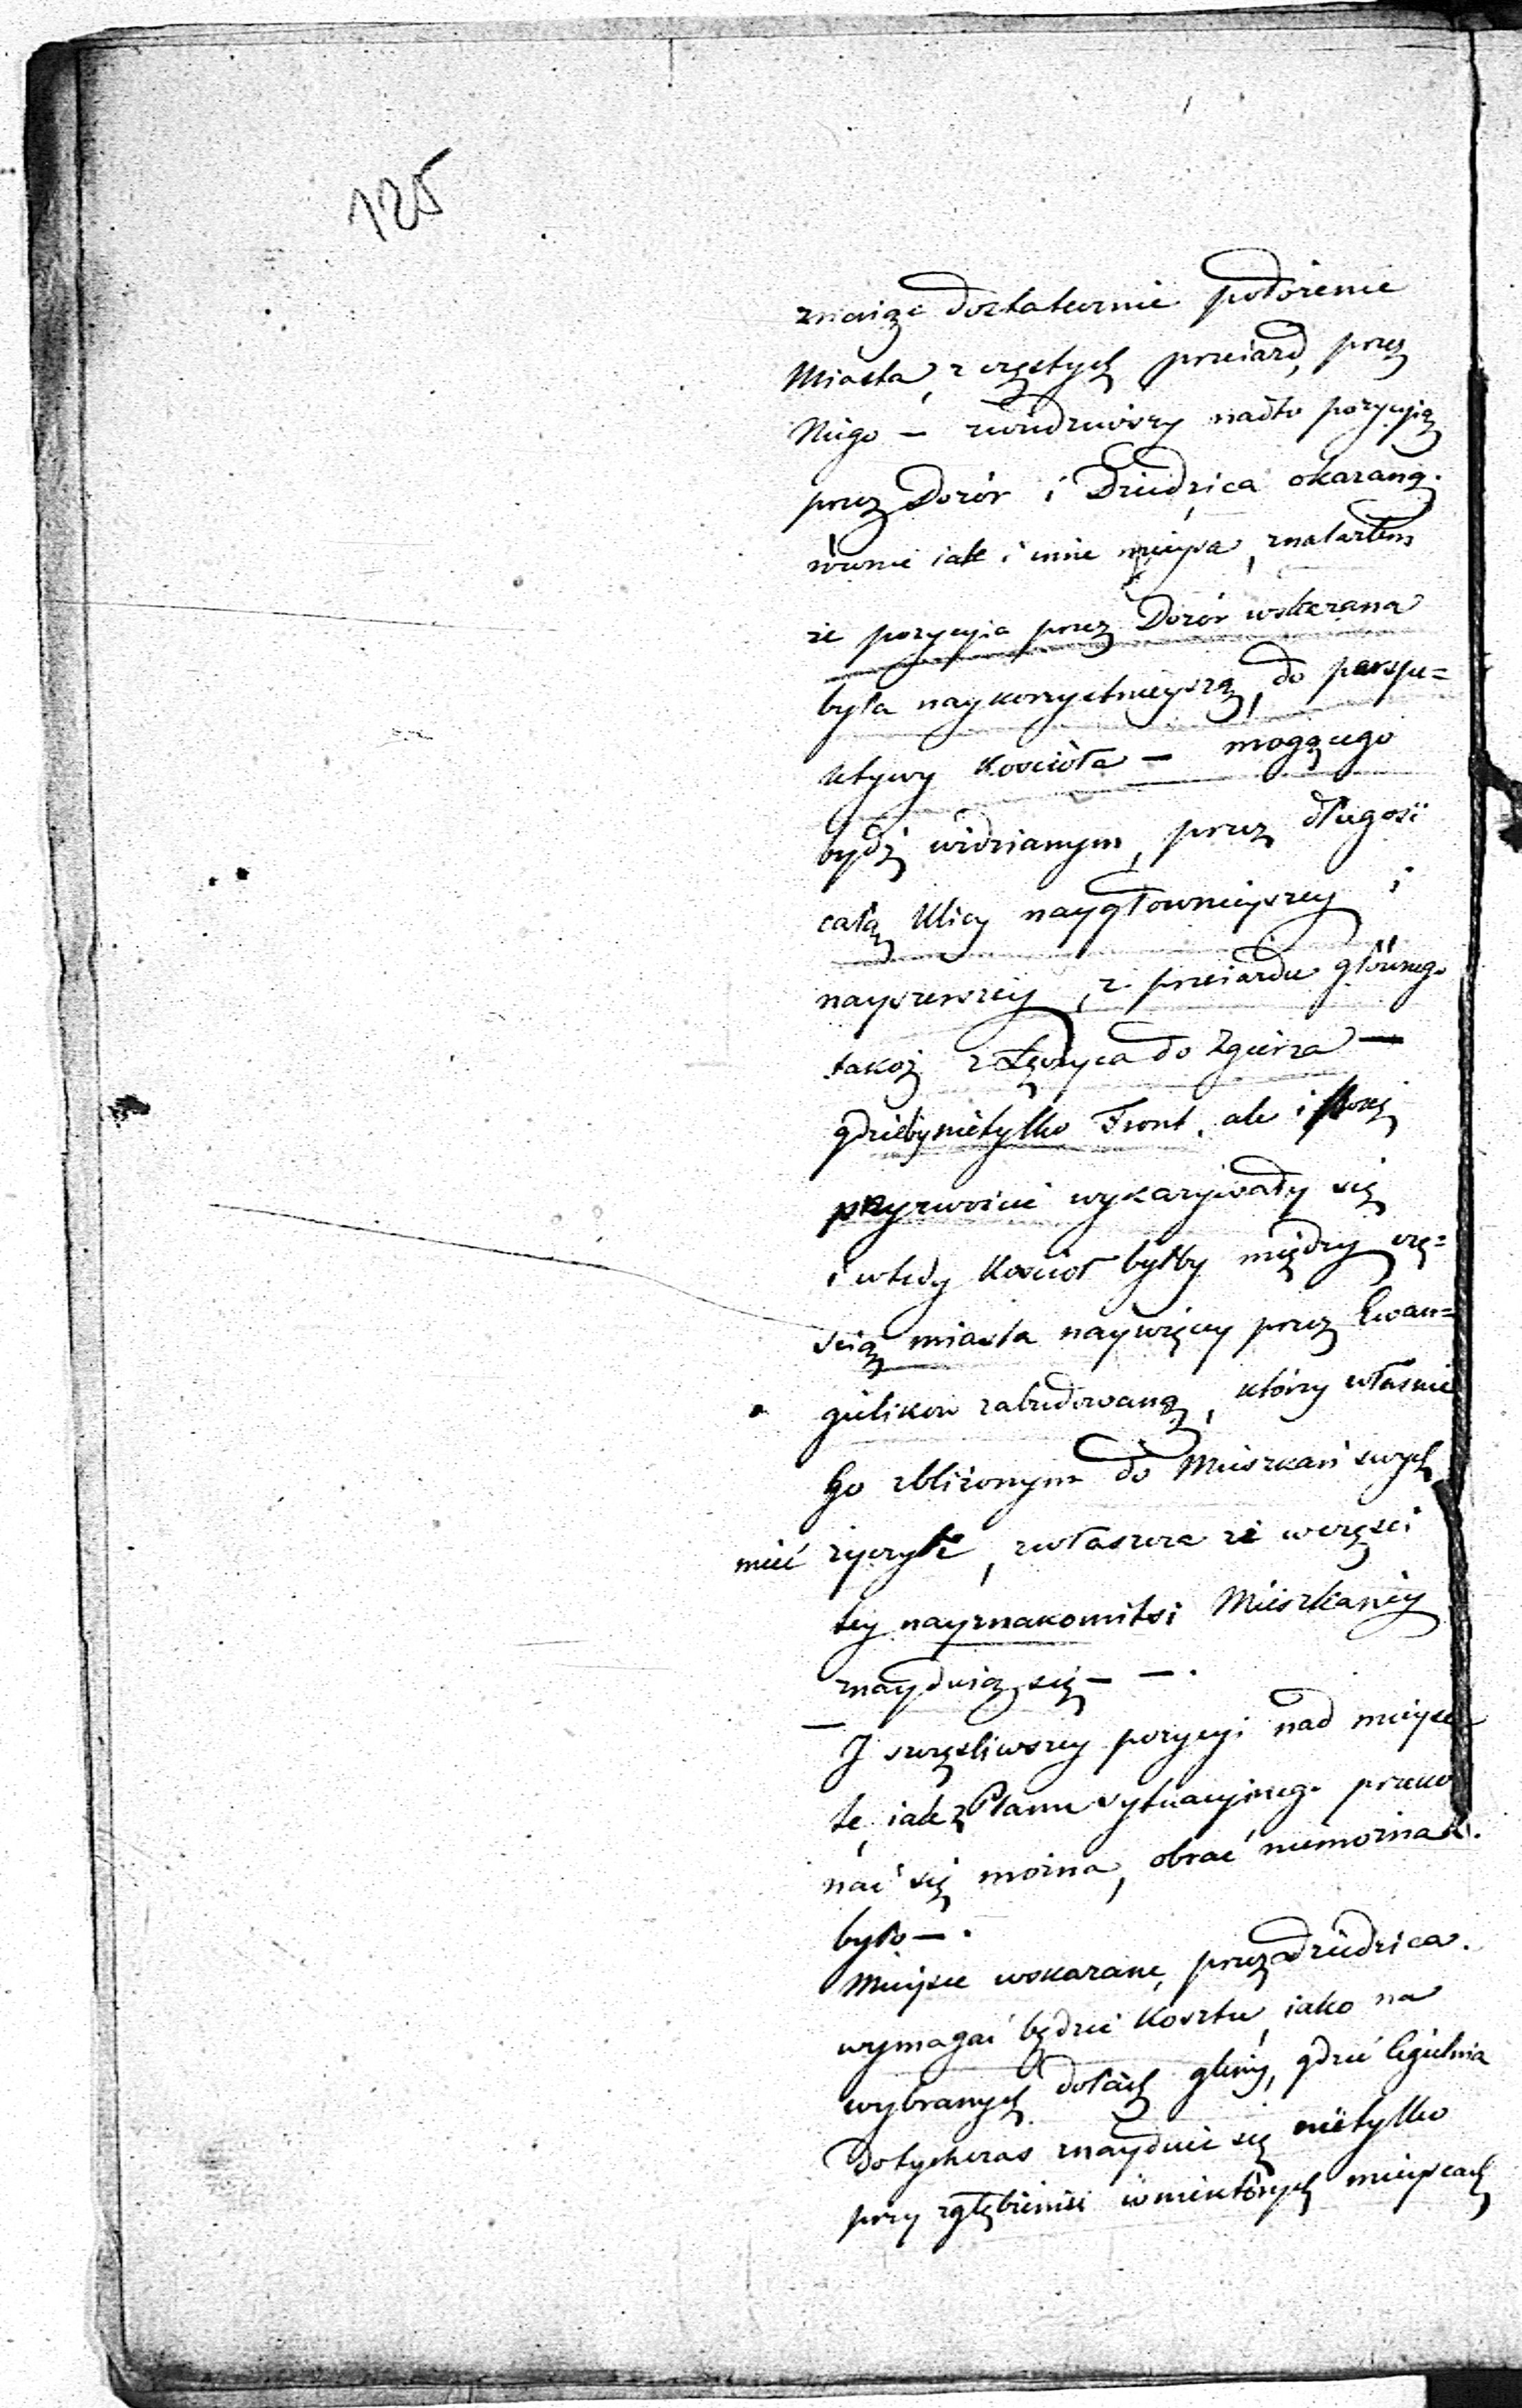 125
znaiąc dostatecznie położenie
Miasta, z częstych przeiazd, przez
Niego — zwiedziwszy nadto pozycyią
przez Dozór i Dziedzica okazaną.
równie iak i inne mieysca, znalazłem
że pozycyia przez Dozór wskazana
była naykorzystnieyszą, do perspe=
ktywy Kościoła — mogącego
bydź widzianym, przez długość
całą Ulicy naygłownieyszey i
nayszerszey, z przeiazdu głównego
takoż z Łęczyca do Zgierza —
gdzieby nietylko Front, ale i boki
przyzwoicie wykazywały się
i wtedy Kościoł byłby między czę=
ścią miasta naywięcey przez Ewan=
gielikow zabudowaną, który właśnie
Go zbliżonym do Mieszkań swych
mieć życzyli, zwłaszcza że w części
tey nayznakomitsi Mieszkańcy
znayduią się — — .
I szczęśliwszey pozycyi nad mieysce
te, iak z Planu sytuacyinego przeko
nać się można, obrać niemożna
było — .
Mieysce wskazane, przez Dziedzica.
wymagać będzie Kosztu, iako na
wybranych dołach gliny, gdzie Cegielnia
dotychczas znayduie się nietylko
przy zgłębieniu w niektórych mieyscach